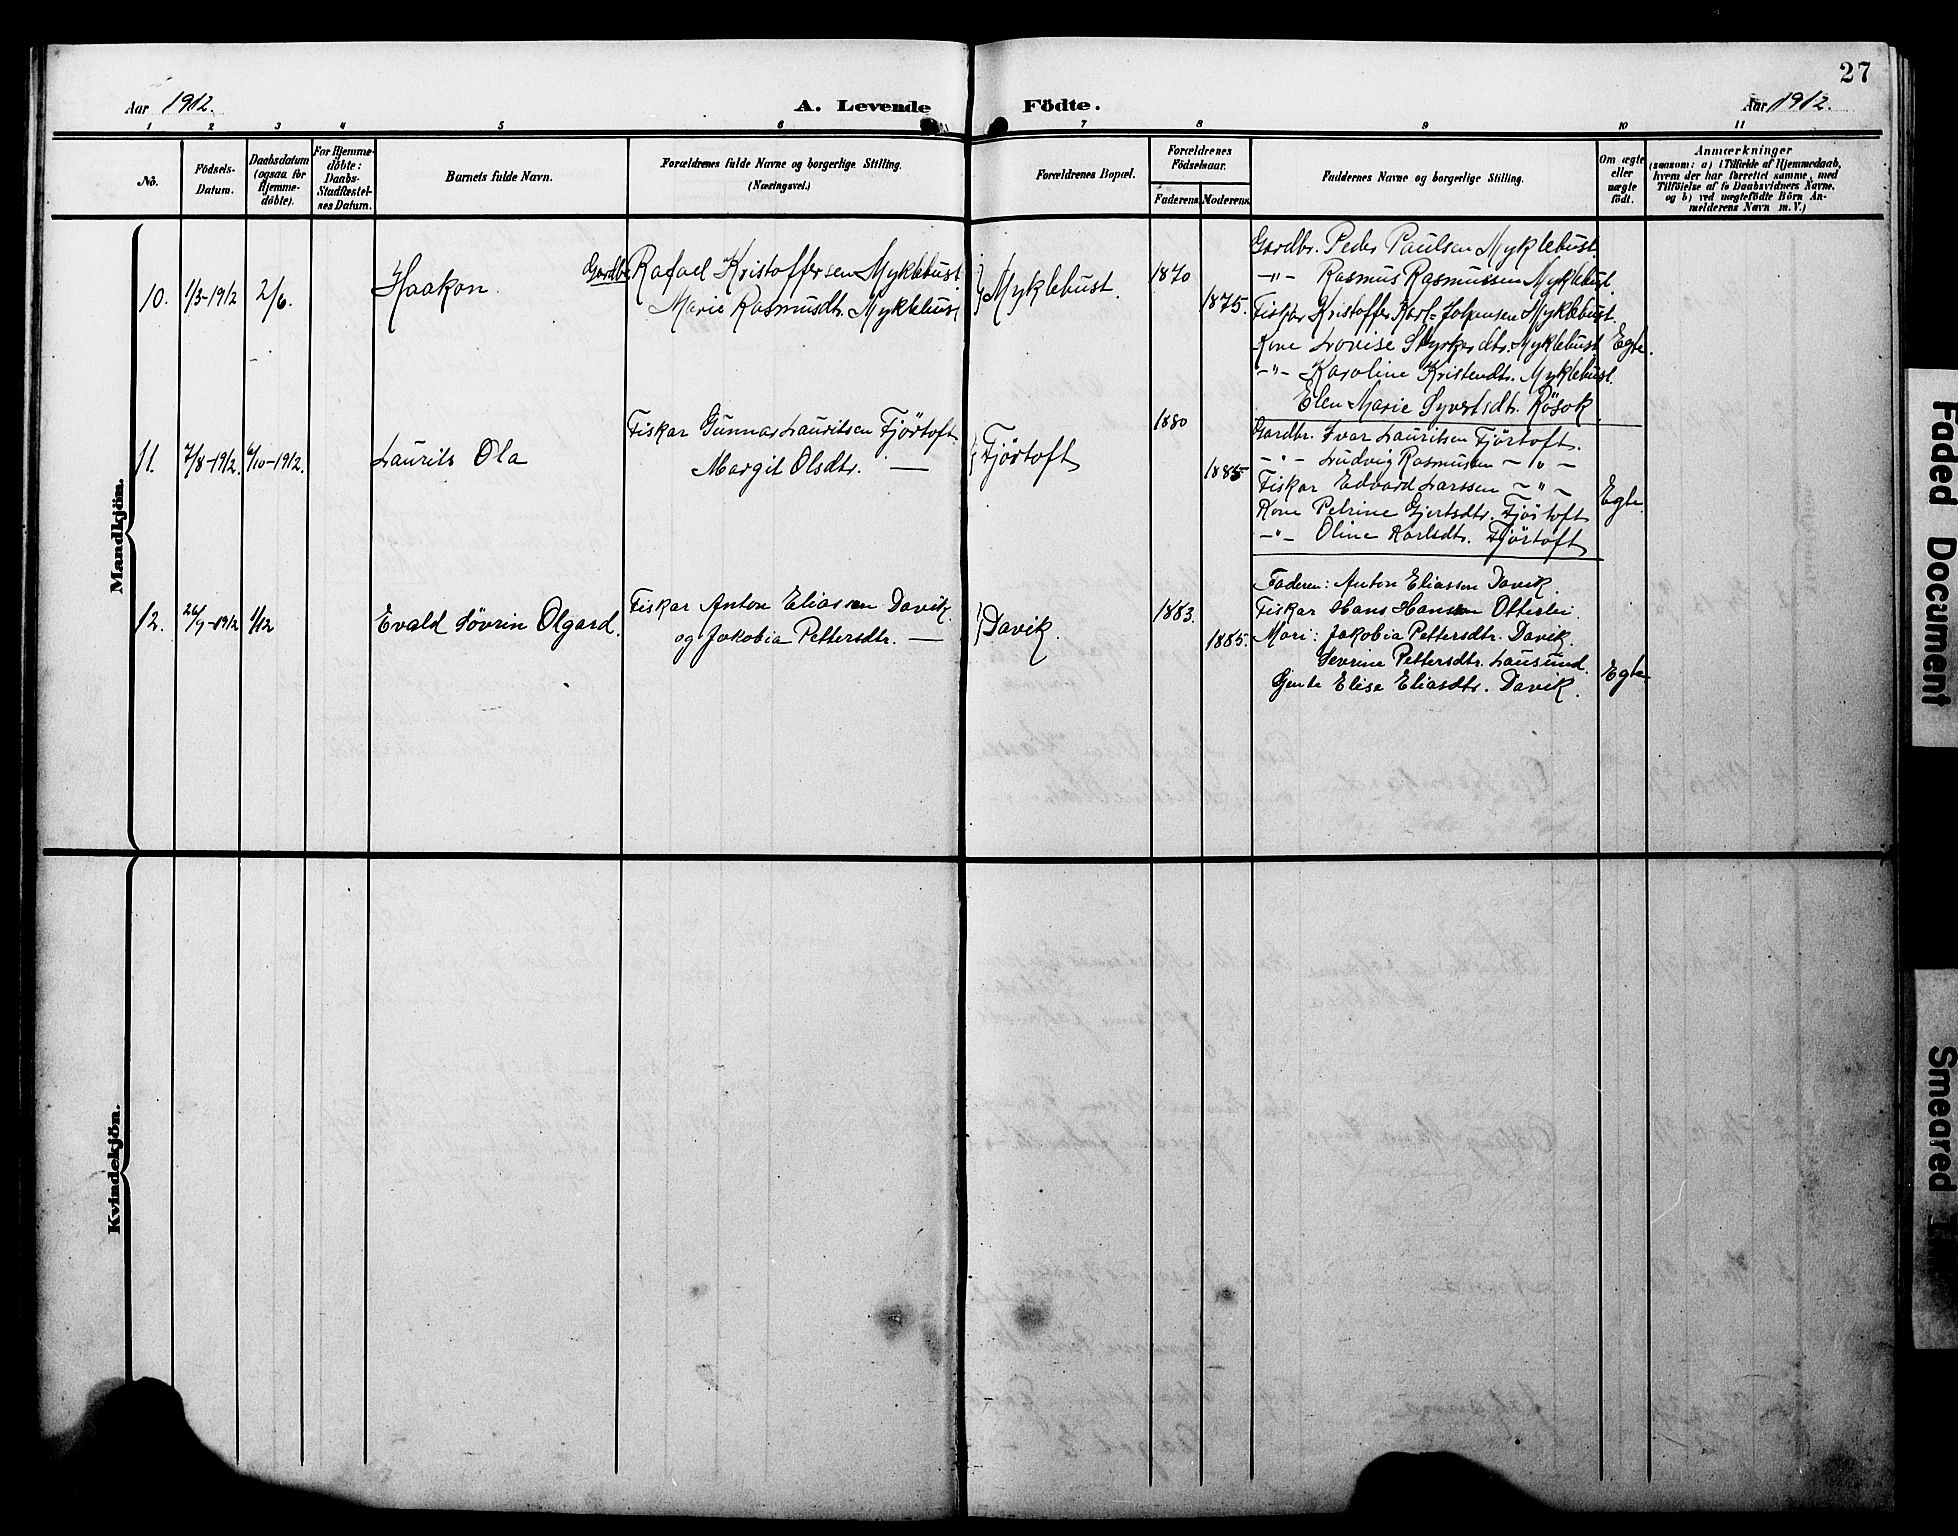 27
Aar 1912. A. Levende Födte. Aar 1912.
1 2 3 4 5 6 7 8 9 10 11
No.
Födsels-
Datum.
Daabsdatum
(ogsaa for
Hjemme-
döbte).
For Hjemme-
döbte:
Daabs-
Stadfæstel-
ses Datum.
Barnets fulde Navn.
Forældrenes fulde Navne og borgerlige Stilling.
(Næringsvei.)
Forældrenes Bopæl.
Forældrenes
Födselsaar.
Faderens. Moderens.
Faddernes Navne og borgerlige Stilling.
Om ægte
eller
uægte
födt.
Anmærkninger
(saasom: a) i Tilfælde af Hjemmedaab,
hvem der har forrettet samme, med
Tilföielse af to Daabsvidners Navne,
og b) ved uægtefödte Börn An-
melderens Navn m. V.)
Mandkjön.
10. 1/3-1912 2/6. Haakon.
Gardbr. Rafael Kristoffersen Myklebust
Marie Rasmusdtr. Myklebust
Myklebust. 1870
1875.
Gardbr. Peder Paulsen Myklebust.
-"- Rasmus Rasmussen Myklebust.
Fiskar Kristoffer Karl-Johansen Myklebust.
Kone Lovise Styrkardtr. Myklebust
-"- Karoline Kristendtr. Myklebust.
Elen Marie Syvertsdtr. Rösok
Egte.
11. 7/8-1912. 6/10-1912. Laurits Ola
Fiskar Gunnar Lauritsen Fjörtoft.
Margit Olsdtr. —
Fjörtoft 1880
1885
Gardbr. Ivar Lauritsen Fjörtoft.
-"- Ludvig Rasmussen -"-
Fiskar Edvard Larssen -"-
Kone Petrine Gjertsdtr. Fjörtoft
-"- Oline Karlsdtr. Fjörtoft
Egte.
12. 26/9-1912 1/12 Evald Sövrin Olgard.
Fiskar Anton Eliassen Davik.
og Jakobia Pettersdtr. —
Davik. 1883.
1885.
Faderen: Anton Eliassen Davik.
Fiskar Hans Hansen Otterlei.
Mori: Jakobia Pettersdtr. Davik.
Sevrine Pettersdtr. Lausund.
Gente Elise Eliasdtr. Davik.
Egte
Kvindekjön.
Faded Document
Smeared